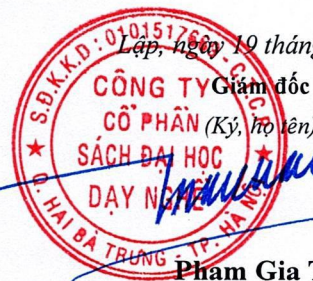 Lập, ngày 19 tháng
Giám đốc
(Ký, họ tên)
S.Đ.K.K.D: 0101517
C.T.C.P
CÔNG TY
CỔ PHẦN
SÁCH ĐẠI HỌC
DẠY NGHỀ
Q. HAI BÀ TRƯNG - TP. HÀ NỘI
Phạm Gia